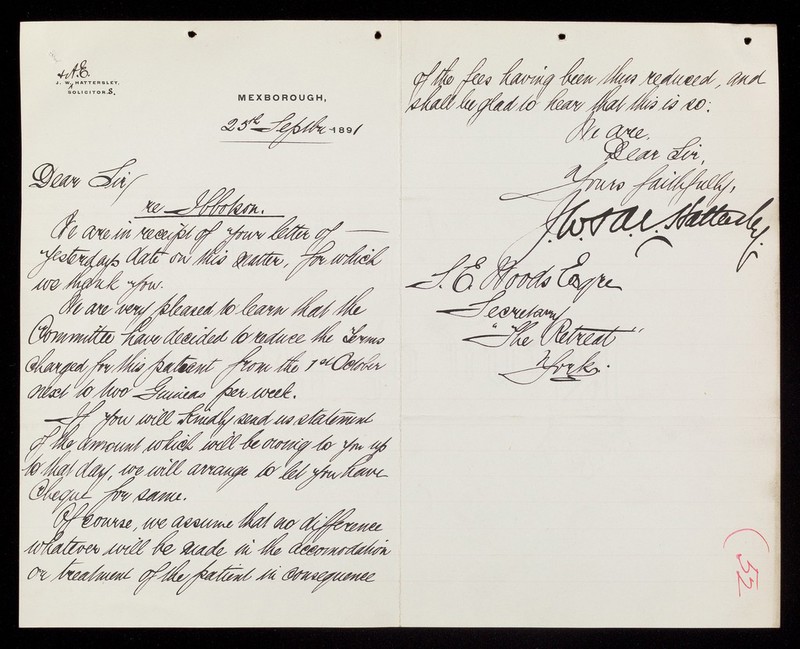 & A. E.
J. W. HATTERSLEY,
SOLICITORS.
MEXBOROUGH,
25th Septbr 1891
Dear Sir/
re Ibbotson.
We are in receipt of your letter of
yesterdays date on this matter, for which
we thank you.
We are very pleased to learn that the
Committee have decided to reduce the terms
charged for this patient from the 1st October
next to two Guineas per week.
If you will kindly send us statement
of the amount which will be owing to you up
to that day, we will arrange to let you have
Cheque for same.
Of course, we assume that no difference
whatever will be made in the accomodation
or treatment of the patient in consequence
of the fees having been thus reduced, and
shall be glad to hear that this is so:
We are,
Dear Sir,
Yours faithfully,
J. W. & A. E. Hattersley.
S. E. Woods Esqre
Secretary
"The Retreat"
York.
(52